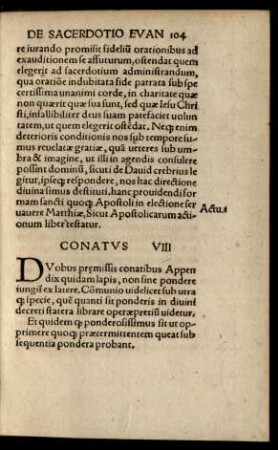 DE SACERDOTIO EVAN 104
re iurando promisit fidelium orationibus ad
exauditionem se affuturum, ostendat quem
elegerit ad sacerdotium administrandum,
qua oratiõe indubitata fide patrata sub spe
certissima unanimi corde, in charitate quæ
non quærit quæ sua sunt, sed quæ Iesu Chri
sti, infallibiliter deus suam patefaciet uolun
tatem, ut quem elegerit ostẽdat. Neq; enim
deterioris conditionis nos sub tempore su=
mus reuelatæ gratiæ, quã ueteres sub um
bra & imagine, ut illi in agendis consulere
possint dominũ, sicuti de Dauid crebrius le
gitur, ipseq; respondere, nos hac directione
diuina simus destituti. hanc prouidendi for
mam sancti quoq; Apostoli in electione ser
uauere Matthiæ, Sicut Apostolicarum acti
onum liber testatur.
Actu.1
CONATVS VIII
DVobus præmissis conatibus Appen
dix quidam lapis, non sine pondere
iungi ex latere. Cõmunio uidelicet sub utra
q; specie, quẽ quanti sit ponderis in diuini
decreti statera librare operæpretiũ uidetur.
Et quidem q; ponderosissimus sit ut op=
primere quoq; prætermittentem queat sub
sequentia pondera probant.